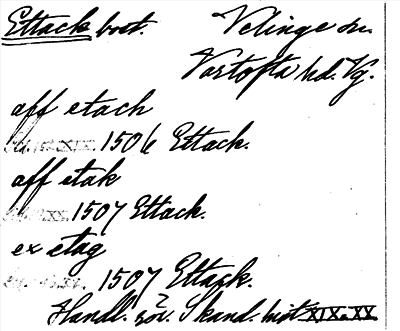 Ettack bost. Velinge sn.
Vartofta hd. Vg.
aff etach
1506 Ettack.
aff etak
1507 Ettack.
ex etag
1507 Ettack.
Handl. rör. Skand. hist XIX-XX